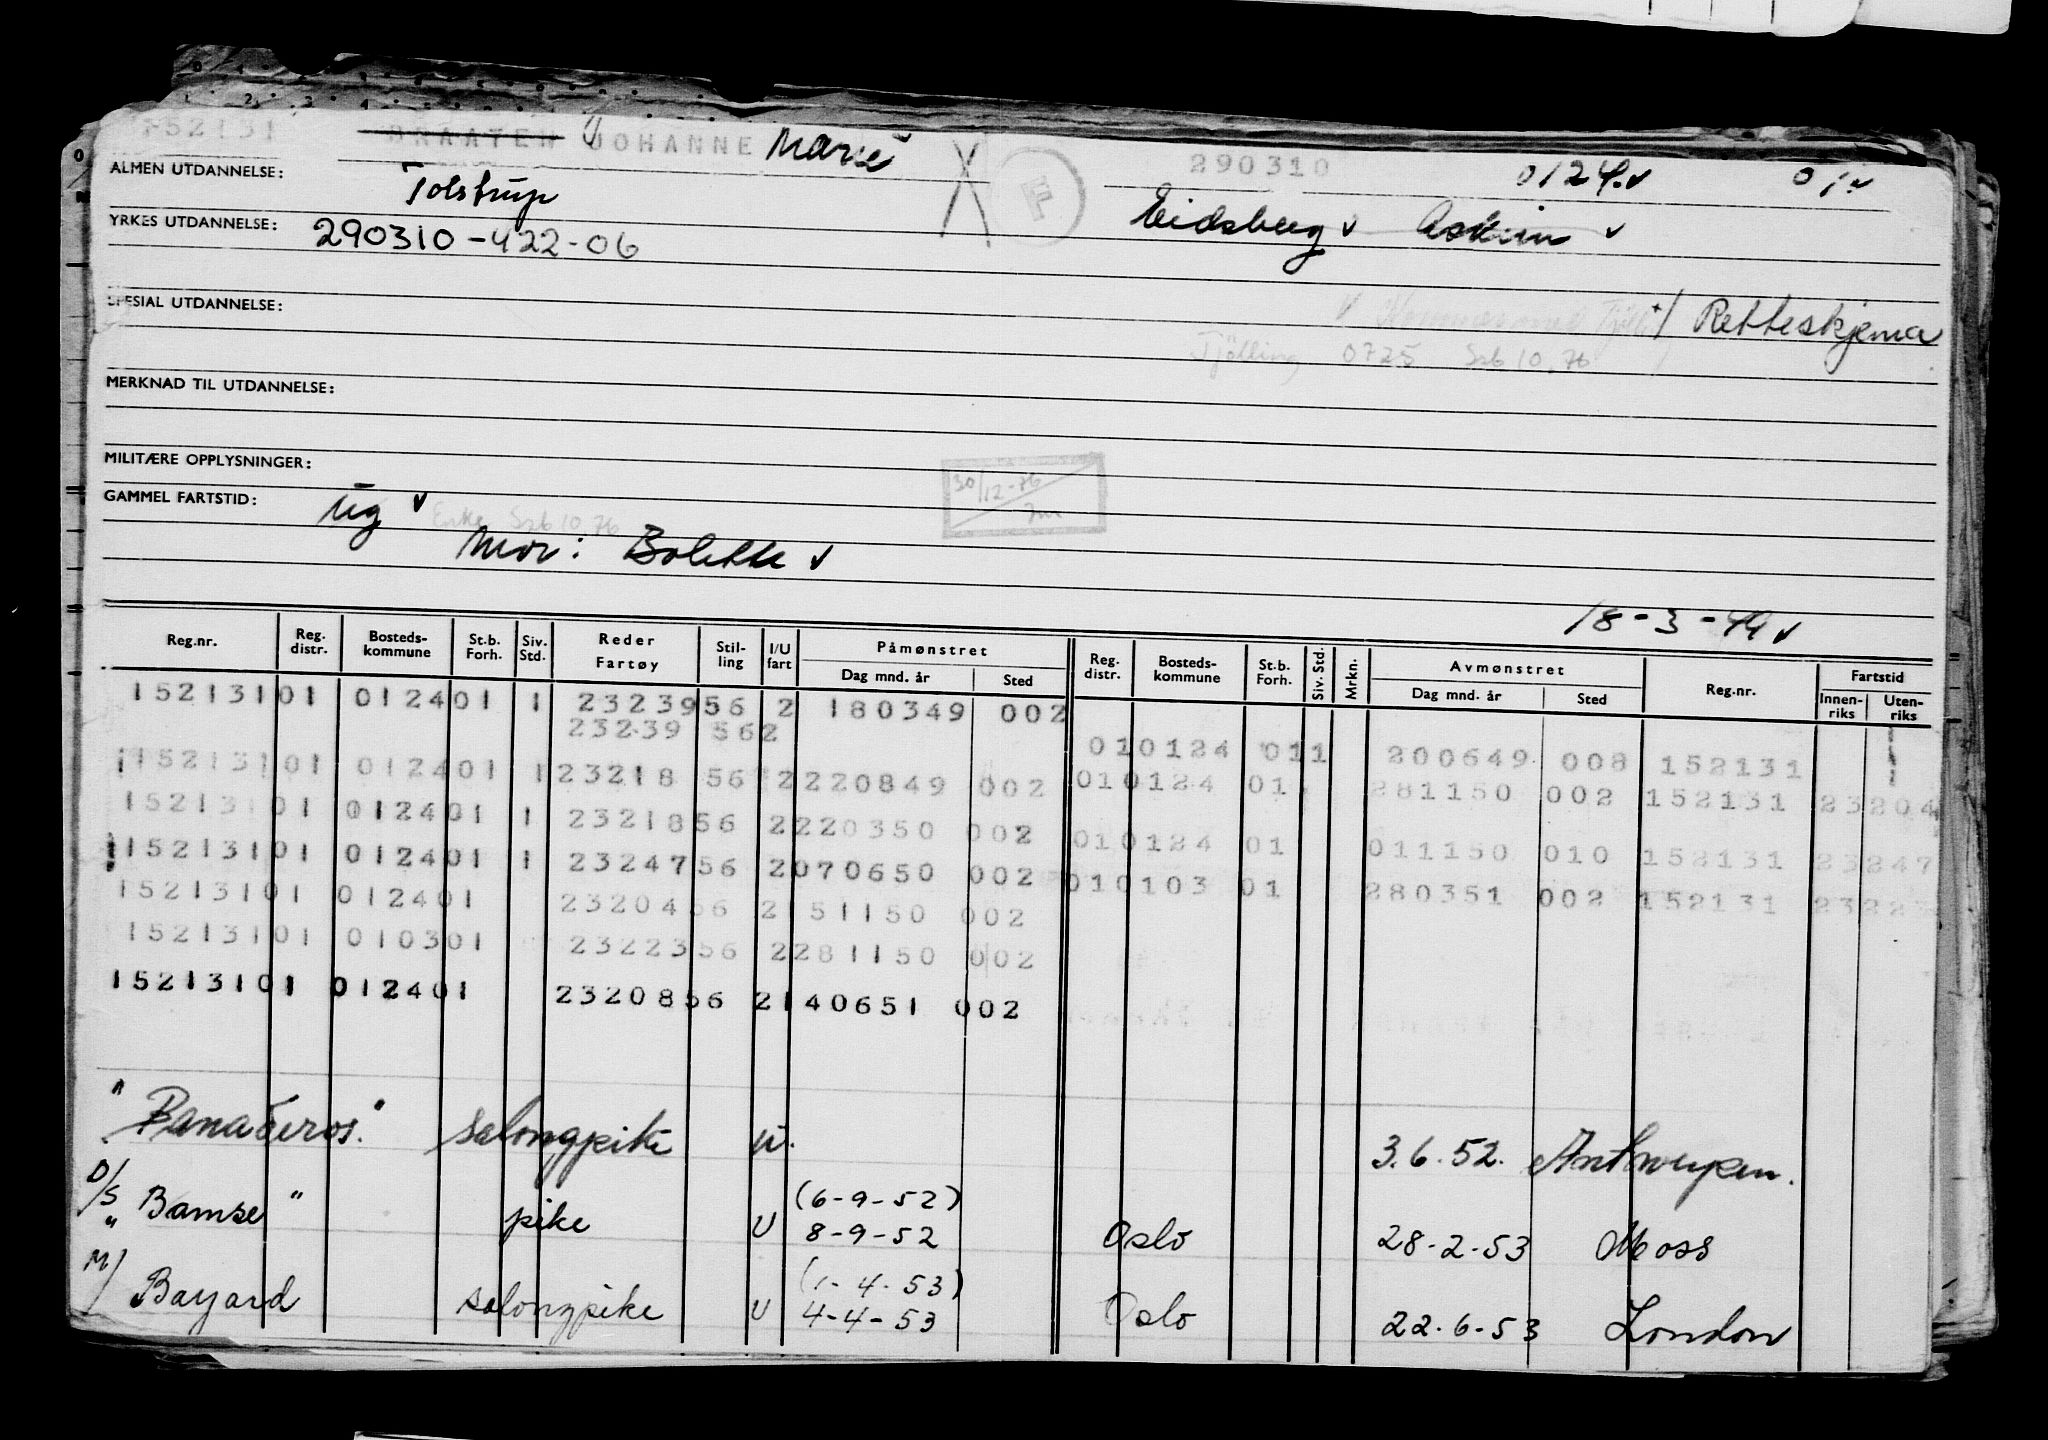 152131 BRAATEN JOHANNE Marie 290310 0124 01
ALMEN UTDANNELSE: Tolstrup F Eidsberg Askim
YRKES UTDANNELSE: 290310-422-06
SPESIAL UTDANNELSE: Retteskjema
Tjølling 0725 Ssb 10.76
MERKNAD TIL UTDANNELSE:
MILITÆRE OPPLYSNINGER: 30/12-76
GAMMEL FARTSTID: ug Enke Ssb 10.76
Mor: Bolette
18-3-49
Reg.nr. Reg. distr. Bosteds-kommune St.b. Forh. Siv. Std. Reder Fartøy Stil-ling I/U fart Påmønstret Dag mnd. år Sted Reg. distr. Bosteds-kommune St.b. Forh. Siv. Std. Mrkn. Avmønstret Dag mnd. år Sted Reg.nr. Fartstid Innen-riks Uten-riks
152131 01 0124 01 1 23239 56 2 180349 002
23239 56 2 01 0124 01 1 200649 008 152131
152131 01 0124 01 1 23218 56 2 220849 002 01 0124 01 281150 002 152131 23204
152131 01 0124 01 1 23218 56 2 220350 002 01 0124 01 011150 010 152131 23247
152131 01 0124 01 1 23247 56 2 070650 002 01 0103 01 280351 002 152131 23223
152131 01 0124 01 23204 56 2 151150 002
152131 01 0103 01 23223 56 2 281150 002
152131 01 0124 01 23208 56 2 140651 002
"Panaderos" salongpike u. 3.6.52. Antwerpen.
D/S "Bamse" pike U (6-9-52) 8-9-52 Oslo 28-2-53 Moss
M/ Bayard salongpike U (1-4-53) 4-4-53 Oslo 22-6-53 London